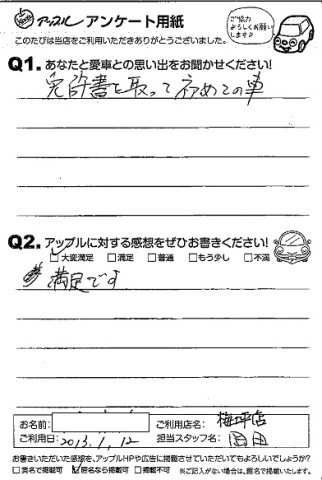 アップル アンケート用紙
ご協力
よろしくお願い
します♪
このたびは当店をご利用いただきありがとうございました。
Q1. あなたと愛車との思い出をお聞かせください!
免許書を取って初めての車
Q2. アップルに対する感想をぜひお書きください!
☑大変満足 □満足 □普通 □もう少し □不満
満足です
お名前:
ご利用店名: 梅坪店
ご利用日: 2013.1.12
担当スタッフ名:
お書きいただいた感想を、アップルHPや広告に掲載させていただいてもよろしいでしょうか?
□実名で掲載可 ☑匿名なら掲載可 □掲載不可 ※ご記入がない場合は、匿名で掲載いたします。